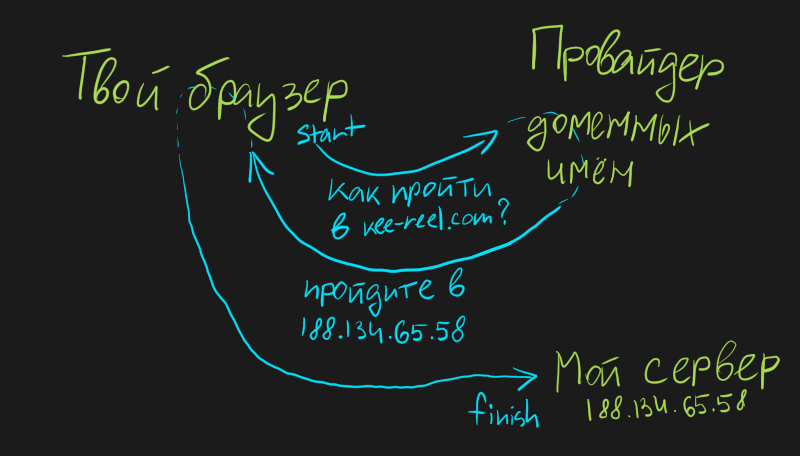 Твой браузер
Провайдер
доменных
имён
start
как пройти
в kee-reel.com?
пройдите в
188.134.65.58
Мой сервер
188.134.65.58
finish